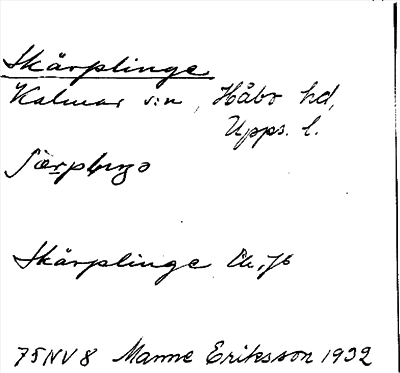 Skärplinge
Kalmar s:n, Håbo hd,
Upps. l.
Skärplinge
75NV8 Manne Eriksson 1932